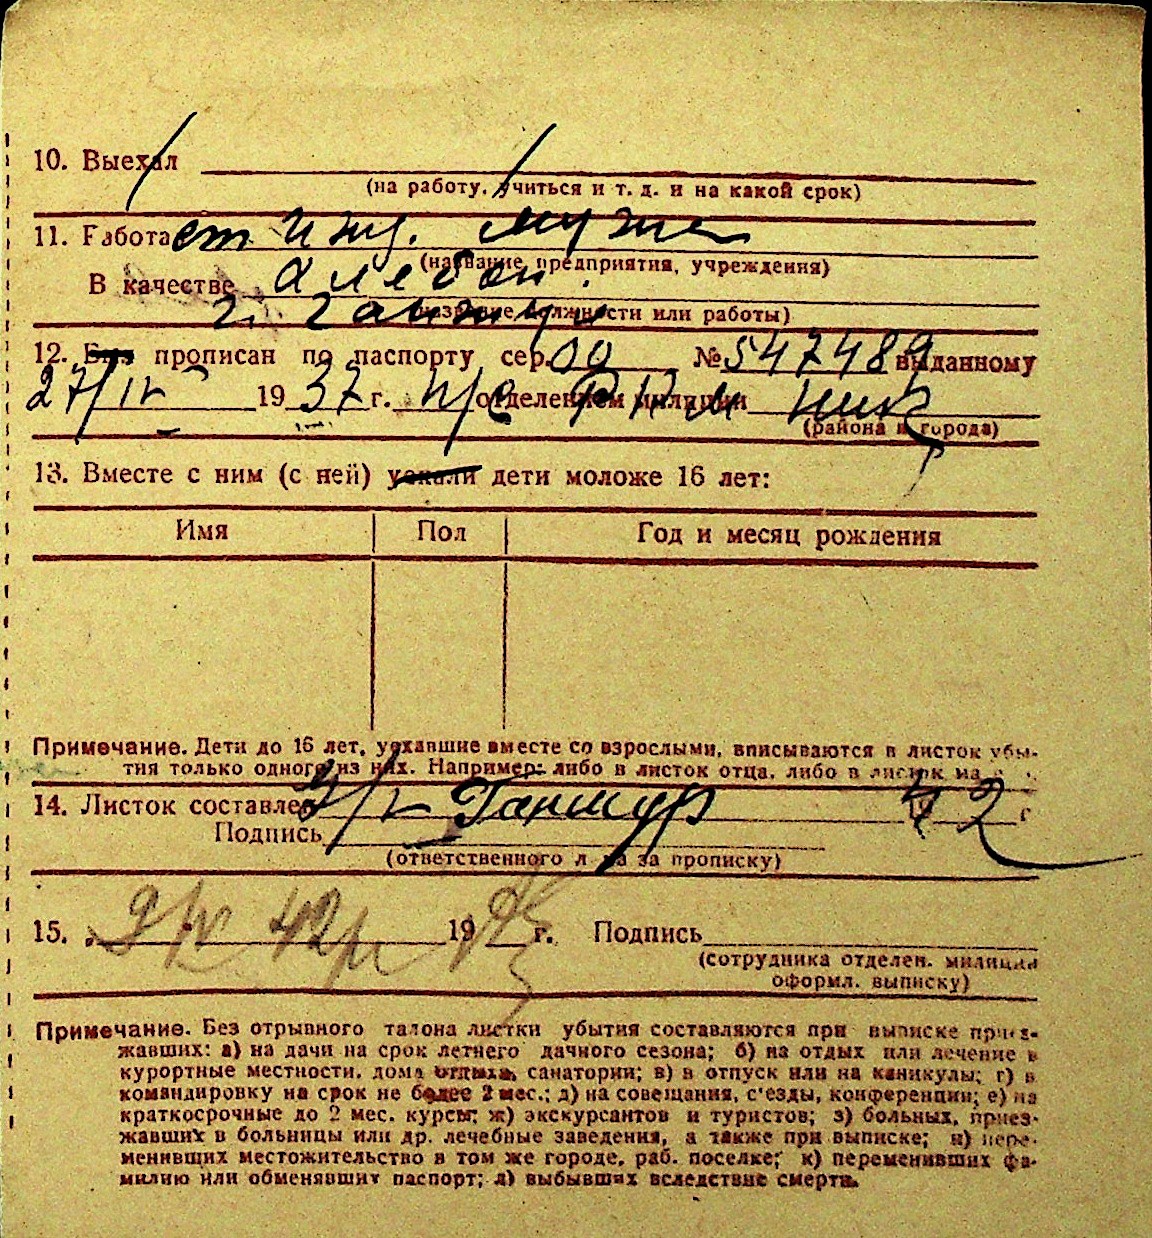 10. Выехал
(на работу, учиться и т. д. и на какой срок)
11. Работает ижд. мужа
(название предприятия, учреждения)
В качестве
(название должности или работы)
12. Был прописан по паспорту сер. 09 № 547489 выданному
27/IV 1937 г. отделением милиции
(района и города)
13. Вместе с ним (с ней) уехали дети моложе 16 лет:
Имя Пол Год и месяц рождения
Примечание. Дети до 16 лет, уехавшие вместе со взрослыми, вписываются в листок убы-
тия только одного из них. Например: либо в листок отца, либо в листок ма
14. Листок составлен 42 г
Подпись
(ответственного лица за прописку)
15. 9/IV 42 г 19 г. Подпись
(сотрудника отделен. милиции
оформл. выписку)
Примечание. Без отрывного талона листки убытия составляются при выписке приез-
жавших: а) на дачи на срок летнего дачного сезона; б) на отдых или лечение в
курортные местности, дома отдыха, санатории; в) в отпуск или на каникулы; г) в
командировку на срок не более 2 мес.; д) на совещания, с'езды, конференции; е) на
краткосрочные до 2 мес. курсы; ж) экскурсантов и туристов; з) больных, приез-
жавших в больницы или др. лечебные заведения, а также при выписке; и) пере-
менивших местожительство в том же городе, раб. поселке; к) переменивших фа-
милию или обменявших паспорт; л) выбывших вследствие смерти.